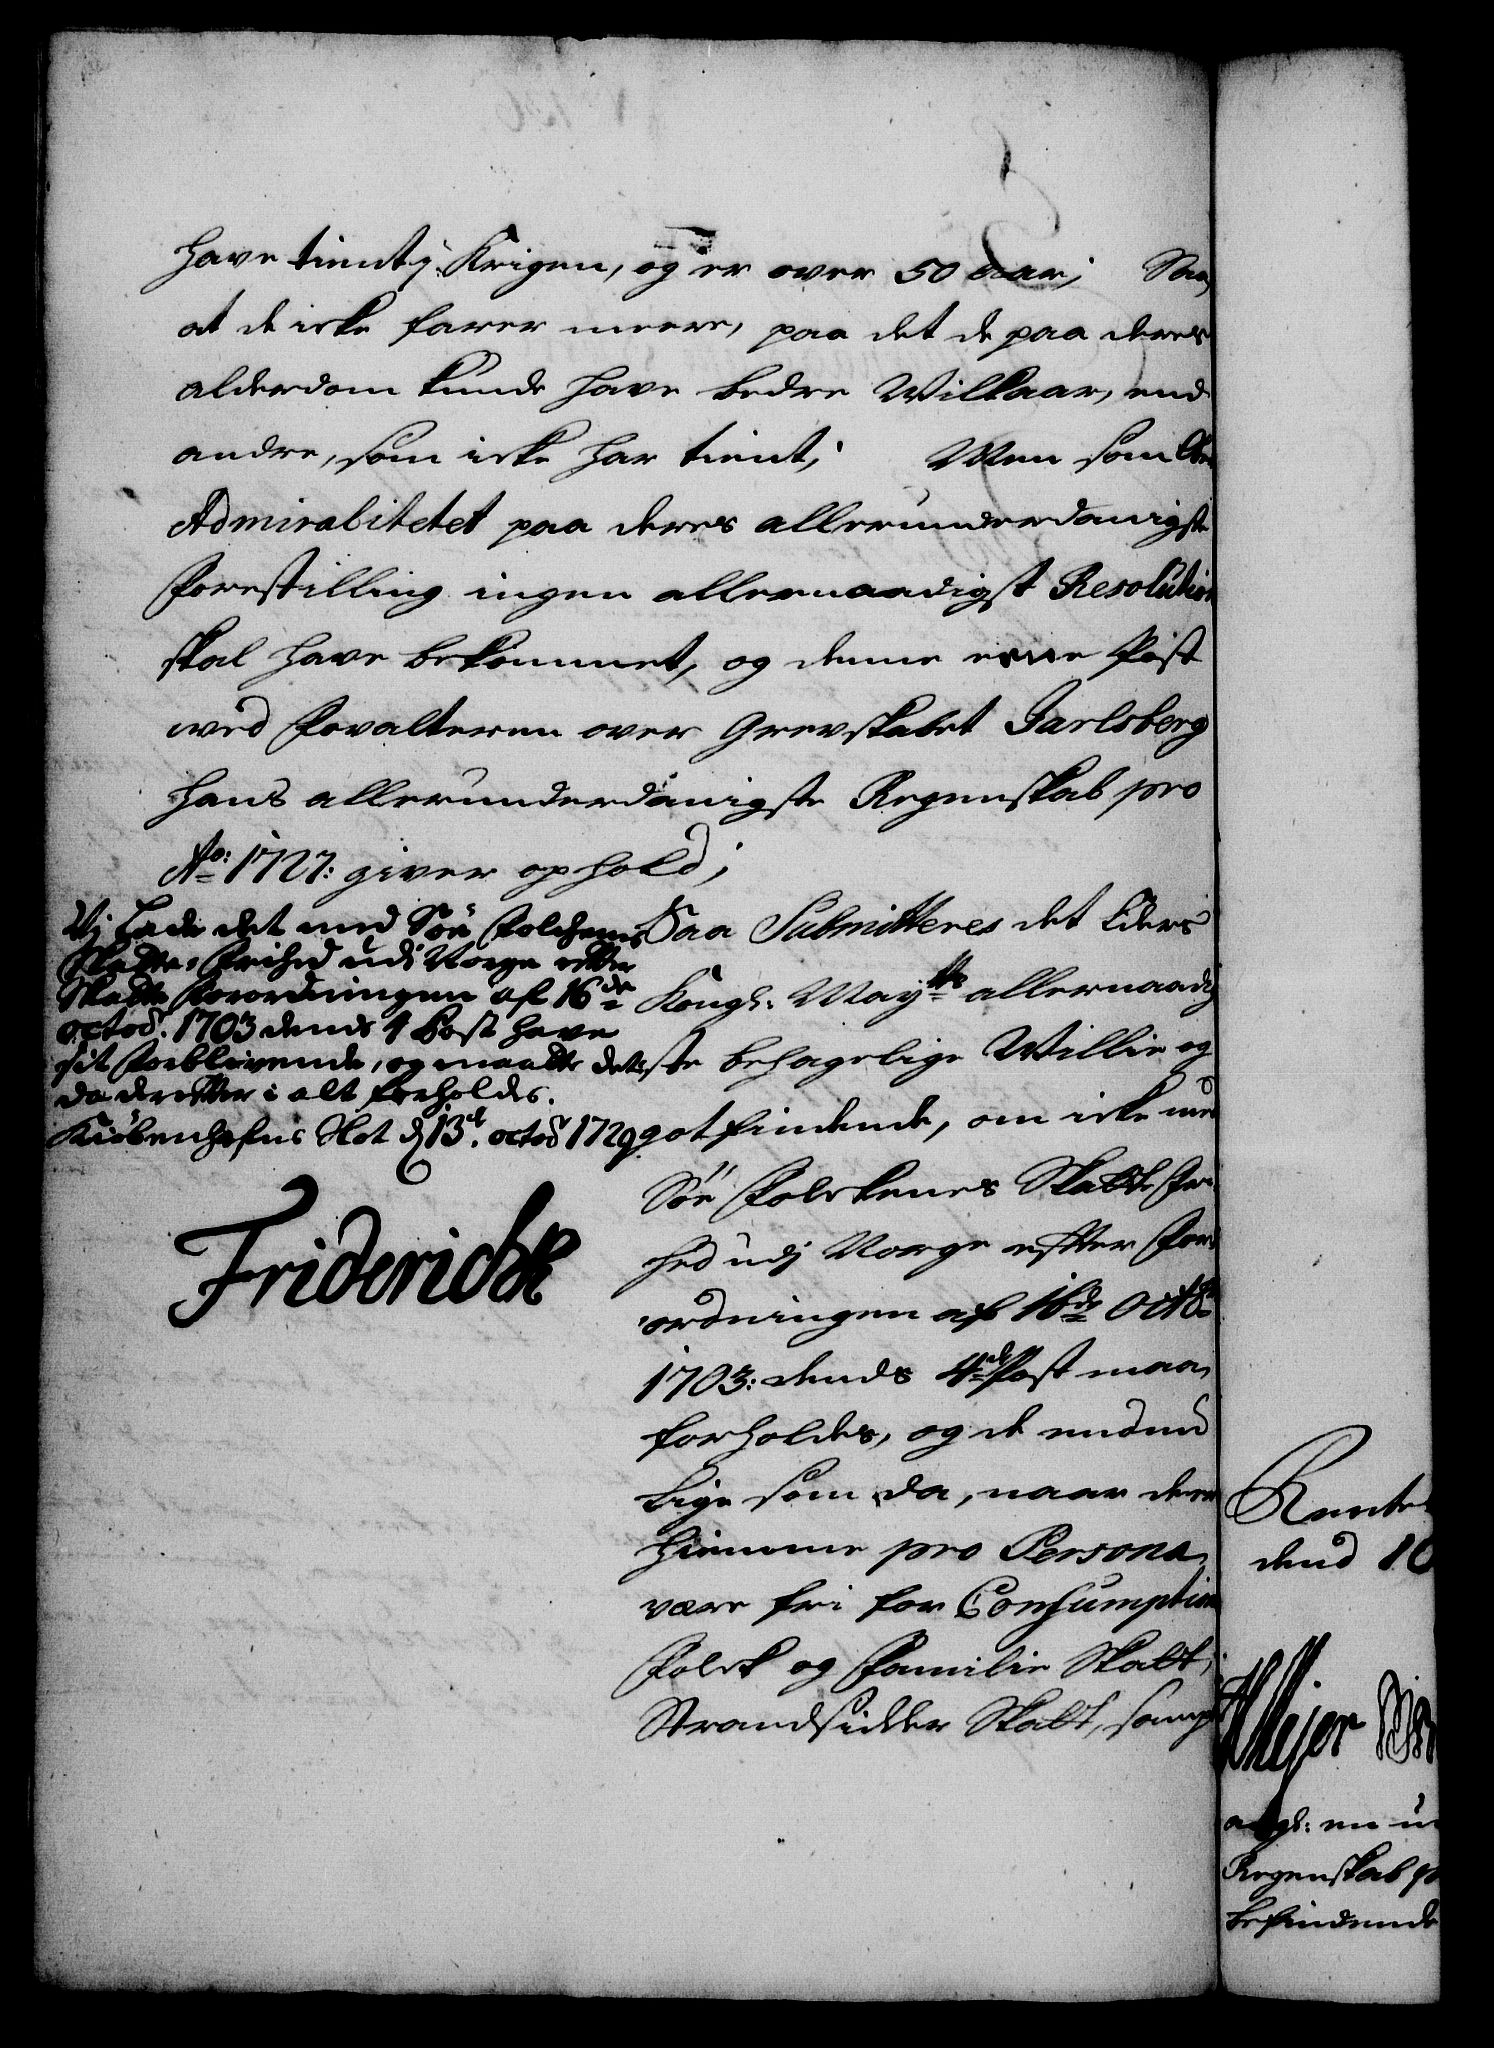 have tient j Krigen, og er over 50 Aar; Saa
at de icke farer meere, paa det de paa deres
alderdom kunde have bedre Wilkaar, end
andre, som icke har tient; Men som
Admiralitetet paa deres allerunderdanigste
Forestilling ingen allernaadigst Resolution
skal have bekommet, og denne eene Post
ved Forvalteren over Grevskabet Jarlsberg
hans allerunderdanigste Regenskab pro
Ao: 1727: giver ophold;
Saa Submitteres det Eders
Kongl: Mayts allernaadig
ste behagelige Willie og
gotfindende, om icke med
Söe Folckenes Skatte Frj
hed udj Norge efter For
ordningen af 16de Octbr
1703: dends 4de Post maa
forholdes, og de endnu
lige som da, naar de ere
hiemme pro Persona
være fri for Consumption
Folck og Familie Skatt,
Strandsidder Skatt, sampt
Vj Lade det med Söe Folchenes
Skatte-Frihed udi Norge efter
Skatte Forordningen af 16de
octob. 1703 dends 4 Post have
sit Forblivende, og maatte det
da derefter i alt forholdes.
Kiöbenhafns Slot d 13t. octob 1729
Friderich R
Rente
dend 10
Meyer
angl: en u
Regenskab p
befindende